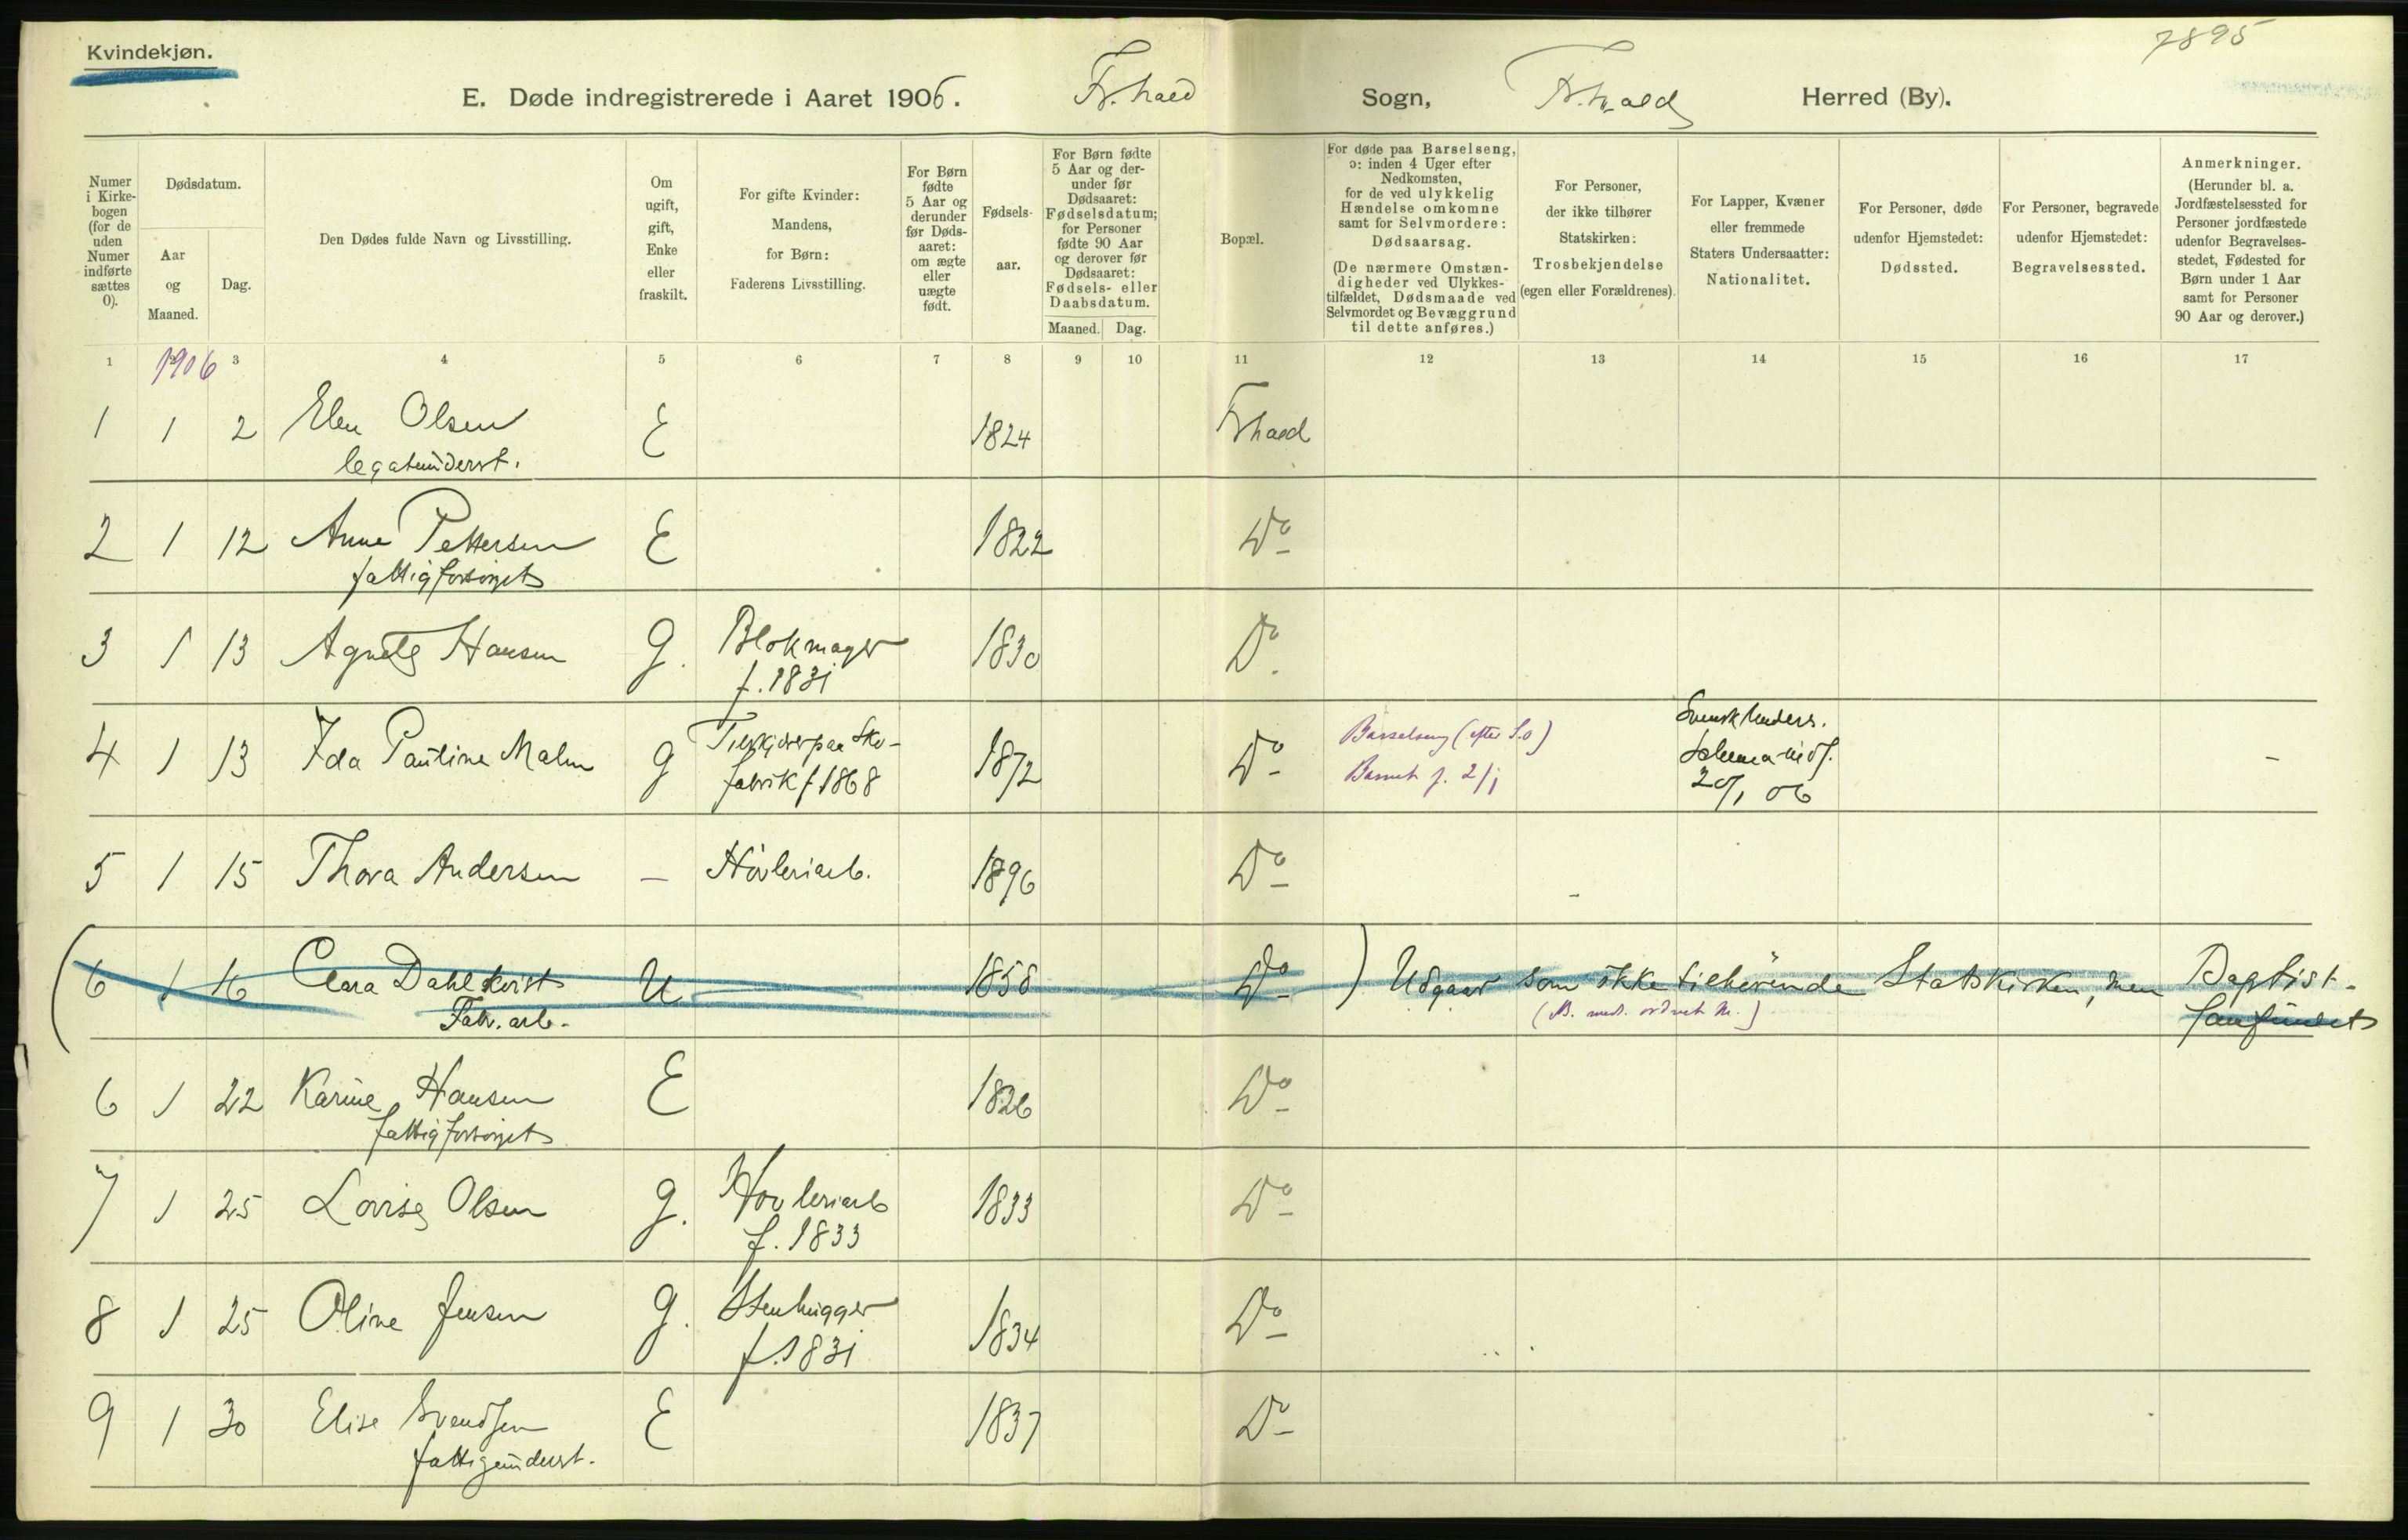 Kvindekjøn.
7895
E. Døde indregistrerede i Aaret 1906. Fr.hald Sogn, Fr.hald Herred (By).
Numer i Kirkebogen (for de uden Numer indførte sættes 0).
Dødsdatum.
Aar og Maaned.
Dag.
Den Dødes fulde Navn og Livsstilling.
Om ugift, gift, Enke eller fraskilt.
For gifte Kvinder: Mandens, for Børn: Faderens Livsstilling.
For Børn fødte 5 Aar og derunder før Dødsaaret: om ægte eller uægte født.
Fødselsaar.
For Børn fødte 5 Aar og derunder før Dødsaaret: Fødselsdatum; for Personer fødte 90 Aar og derover før Dødsaaret: Fødsels- eller Daabsdatum.
Maaned. Dag.
Bopæl.
For døde paa Barselseng, ɔ: inden 4 Uger efter Nedkomsten, for de ved ulykkelig Hændelse omkomne samt for Selvmordere: Dødsaarsag.
(De nærmere Omstændigheder ved Ulykkestilfældet, Dødsmaade ved Selvmordet og Bevæggrund til dette anføres.)
For Personer, der ikke tilhører Statskirken: Trosbekjendelse (egen eller Forældrenes).
For Lapper, Kvæner eller fremmede Staters Undersaatter: Nationalitet.
For Personer, døde udenfor Hjemstedet: Dødssted.
For Personer, begravede udenfor Hjemstedet: Begravelsessted.
Anmerkninger.
(Herunder bl. a. Jordfæstelsessted for Personer jordfæstede udenfor Begravelsesstedet, Fødested for Børn under 1 Aar samt for Personer 90 Aar og derover.)
1 2 3 4 5 6 7 8 9 10 11 12 13 14 15 16 17
1906
1 1 2 Elen Olsen E 1824 Fr.hald
legatunderst.
2 1 12 Anne Pettersen E 1822 Do
fattigforsørget
3 1 13 Agnete Hansen G. Blokmager 1830 Do.
f. 1831
4 1 13 Ida Pauline Malm G paa Sko- 1872 Do Barselseng (efter S.o) Svensk Unders. -
fabrik f 1868 Barnet f. 2/1 Schema
20/1 06
5 1 15 Thora Andersen - Høvleriarb. 1896 Do -
(6 1 16 Clara Dahlkvist U 1858 Do ) Udgaar som ikke tilhørende Statskirken, men Baptist-
Fabr. arb. samfundet
6 1 22 Karine Hansen E 1826 Do
fattigforsørget
7 1 25 Lovise Olsen G. Høvleriarb 1833 Do
f. 1833
8 1 25 Oline Jensen G. Stenhugger 1834 Do
f. 1831
9 1 30 Elise Svendsen E 1837 Do
fattigunderst.